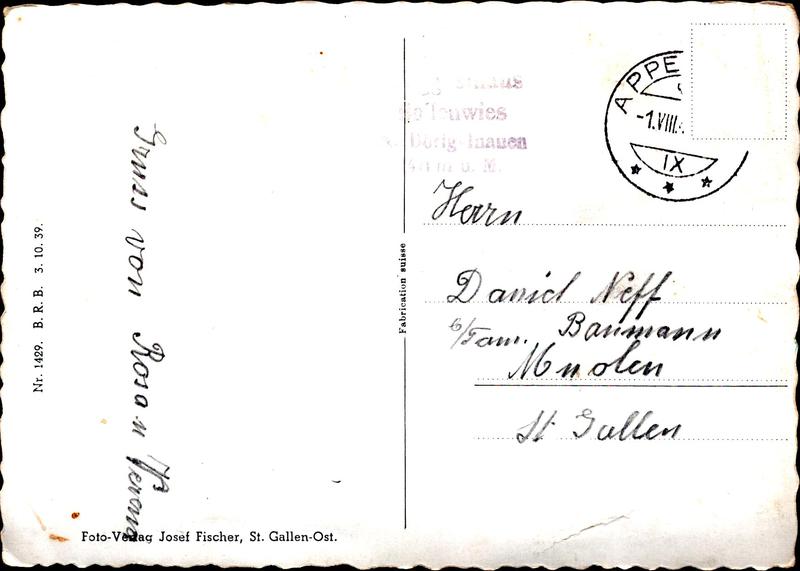 Gruss von Rosa u Verena
Nr. 1429. B. R. B. 3. 10. 39.
Foto-Verlag Josef Fischer, St. Gallen-Ost.
Fabrication suisse
Dörig-Inauen
ü. M.
APPE
-1.VIII.
IX
Herrn
Daniel Neff
b/Fam. Baumann
Muolen
St Gallen